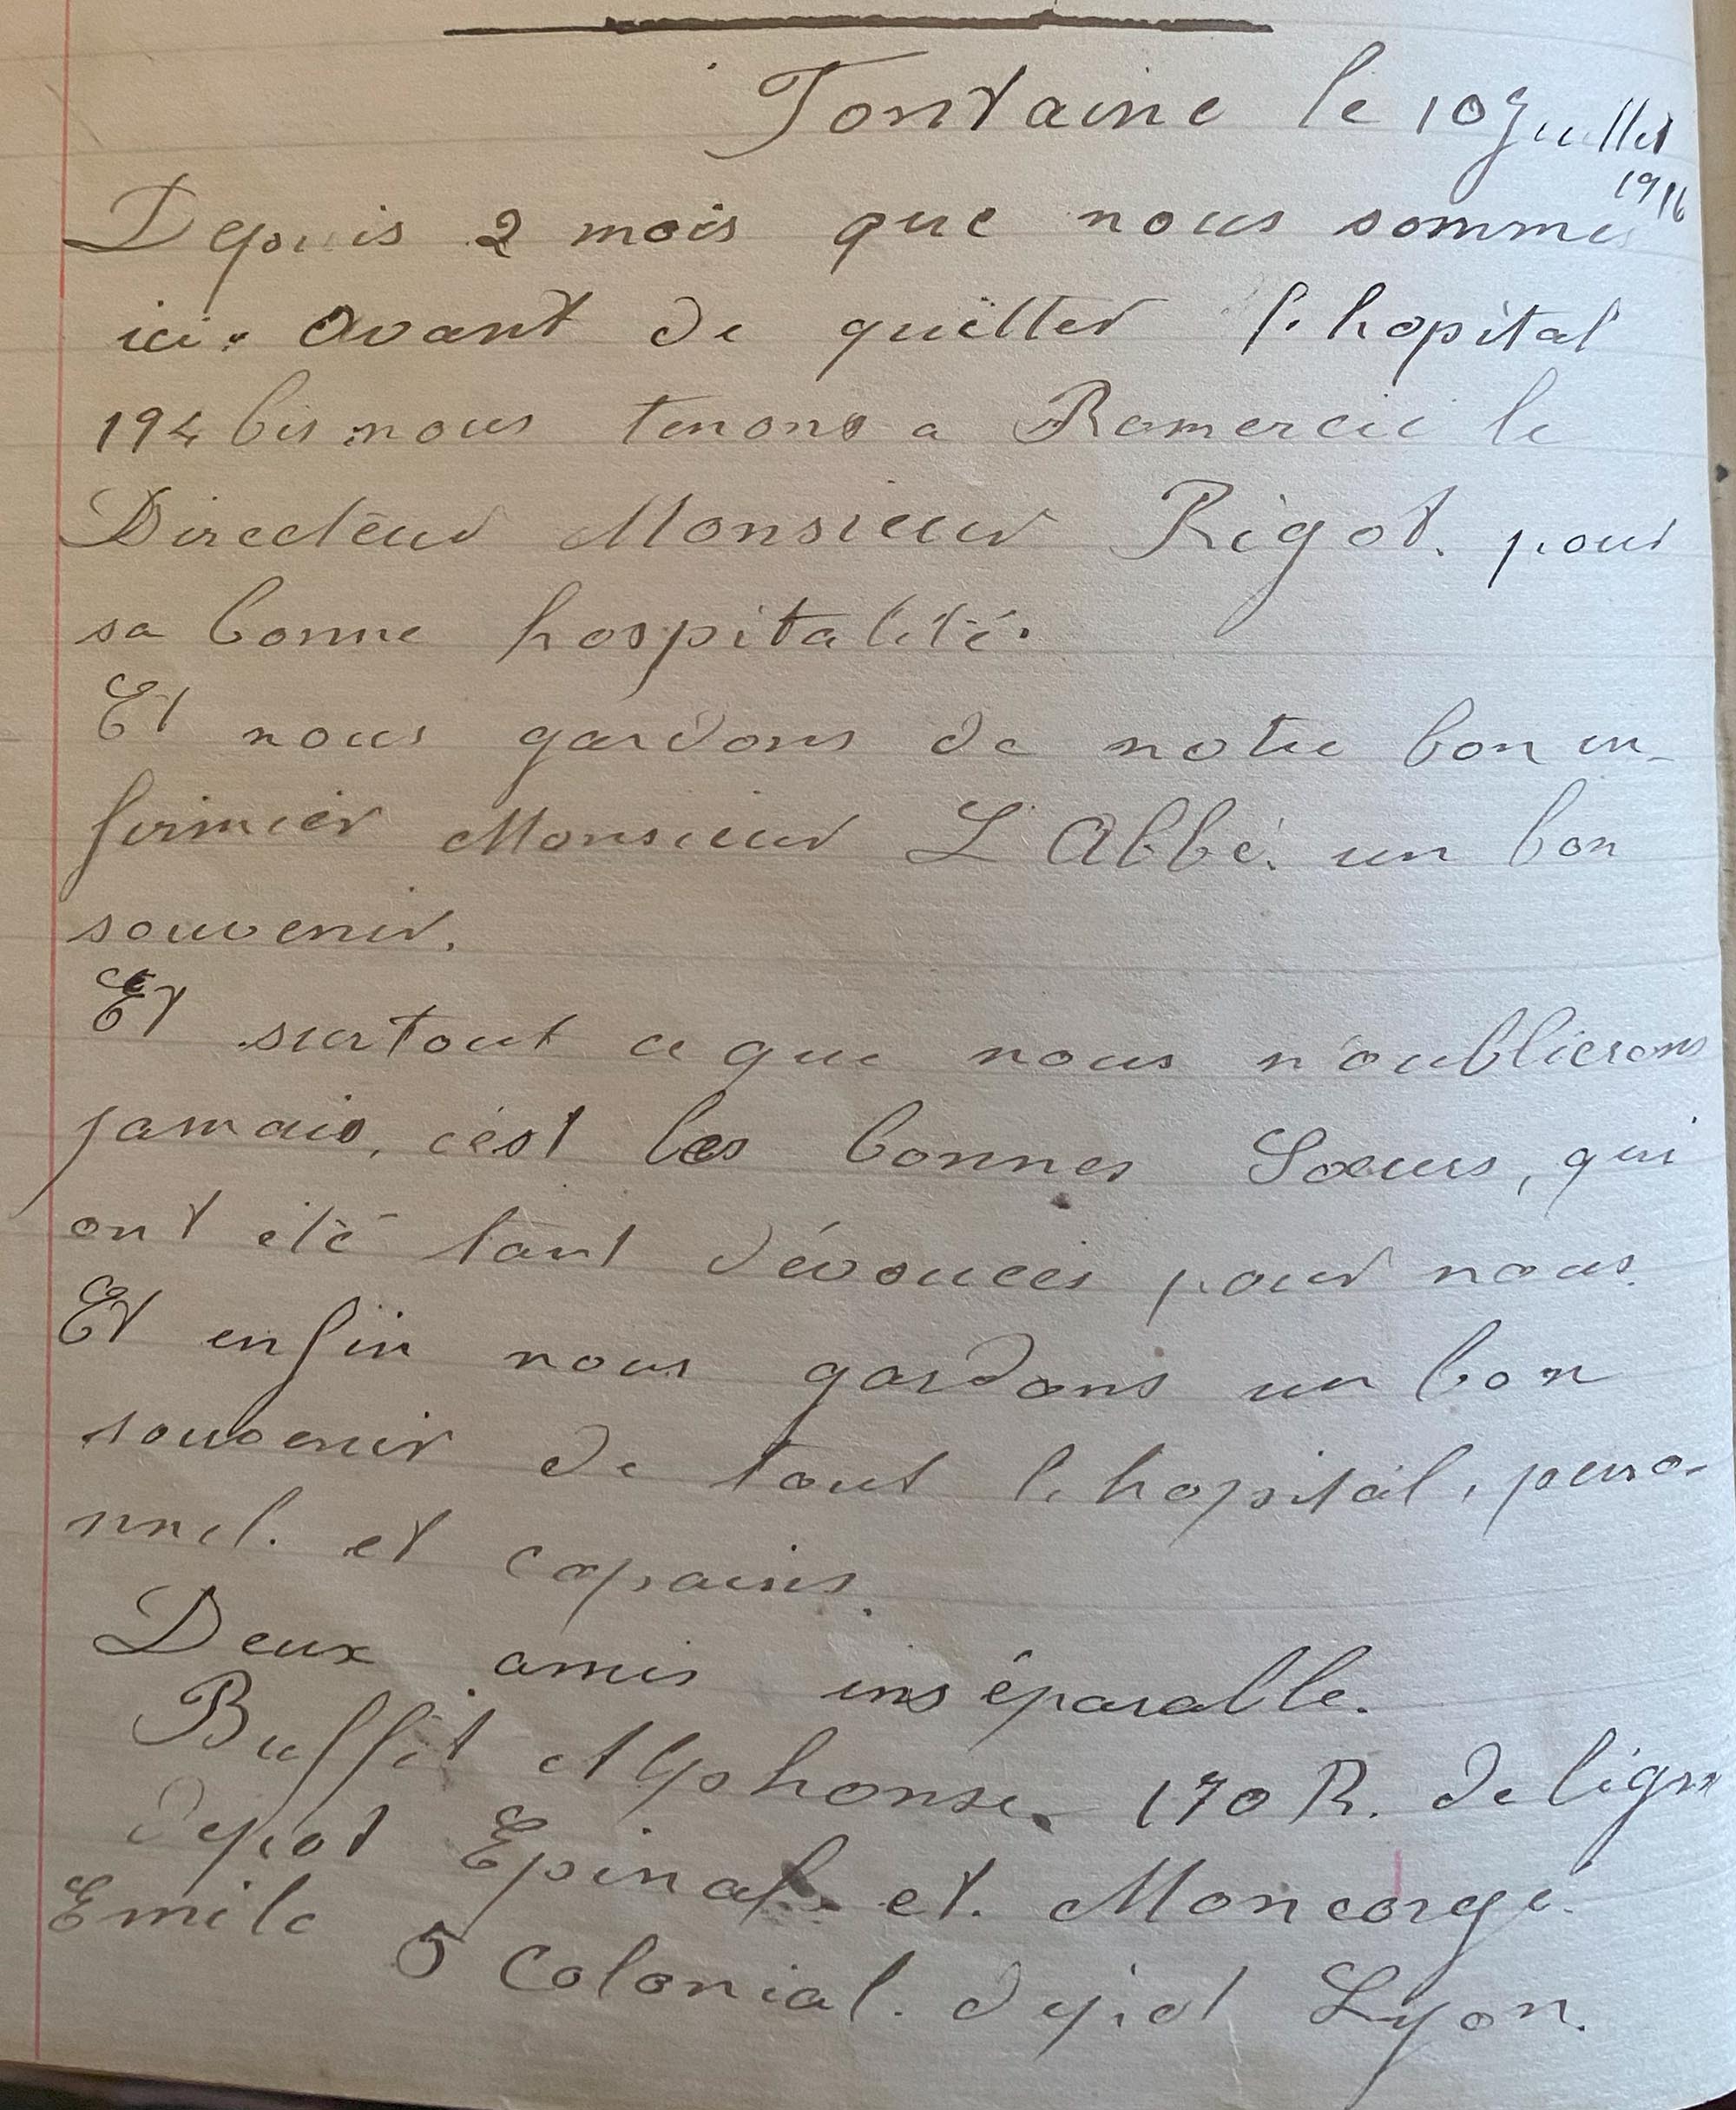 Fontaine le 10 Juillet
1916
Depuis 2 mois que nous sommes
ici. Avant de quitter l'hopital
194 bis nous tenons a Remercié le
Directeur Monsieur Rigot. pour
sa bonne hospitalité.
Et nous gardons de notre bon in-
firmier Monsieur L'Abbé. un bon
souvenir.
Et surtout ce que nous n'oublierons
jamais, c'est les bonnes Soeurs, qui
ont été tant dévouées pour nous.
Et enfin nous gardons un bon
souvenir de tout l'hopital, perso-
nnel. et copains.
Deux amis inséparable.
Buffet Alphonse. 170 R. de ligne
depot Epinal. et. Moncorgé.
Emile 5 Colonial. depot Lyon.